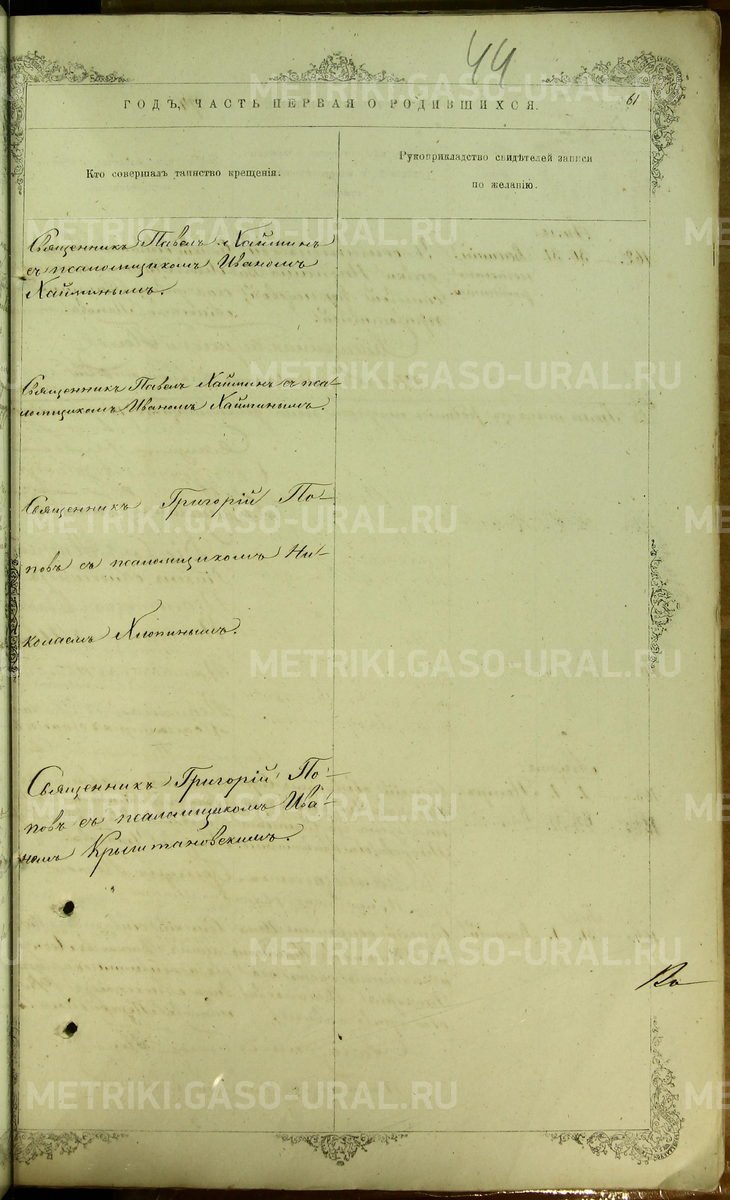 44
ГОДЪ, ЧАСТЬ ПЕРВАЯ О РОДИВШИХСЯ.
61
Кто совершалъ таинство крещенія.
Рукоприкладство свидѣтелей записи
по желанію.
Священникъ Павелъ Хайминъ
съ псаломщикомъ Иваномъ
Хайминымъ.
Священникъ Павелъ Хайминъ съ пса-
ломщикомъ Иваномъ Хайминымъ.
Священникъ Григорій По-
повъ съ псаломщикомъ Ни-
колаемъ Хлопинымъ.
Священникъ Григорій По-
повъ съ псаломщикомъ Ива-
номъ Крыштановскимъ.
METRIKI.GASO-URAL.RU